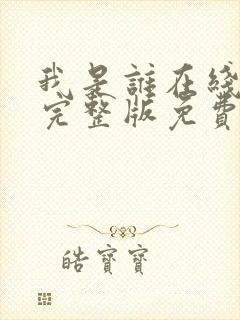 我是誰在綫
完整版免費
皓寶寶